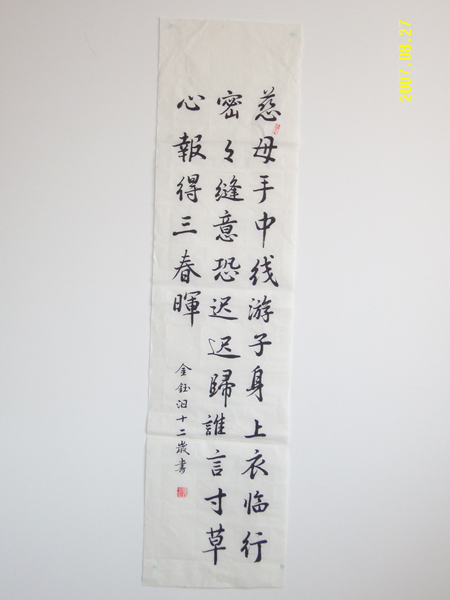 慈母手中线游子身上衣临行
密々缝意恐迟迟歸誰言寸草
心報得三春暉
金钰十二歲書
2007.08.27